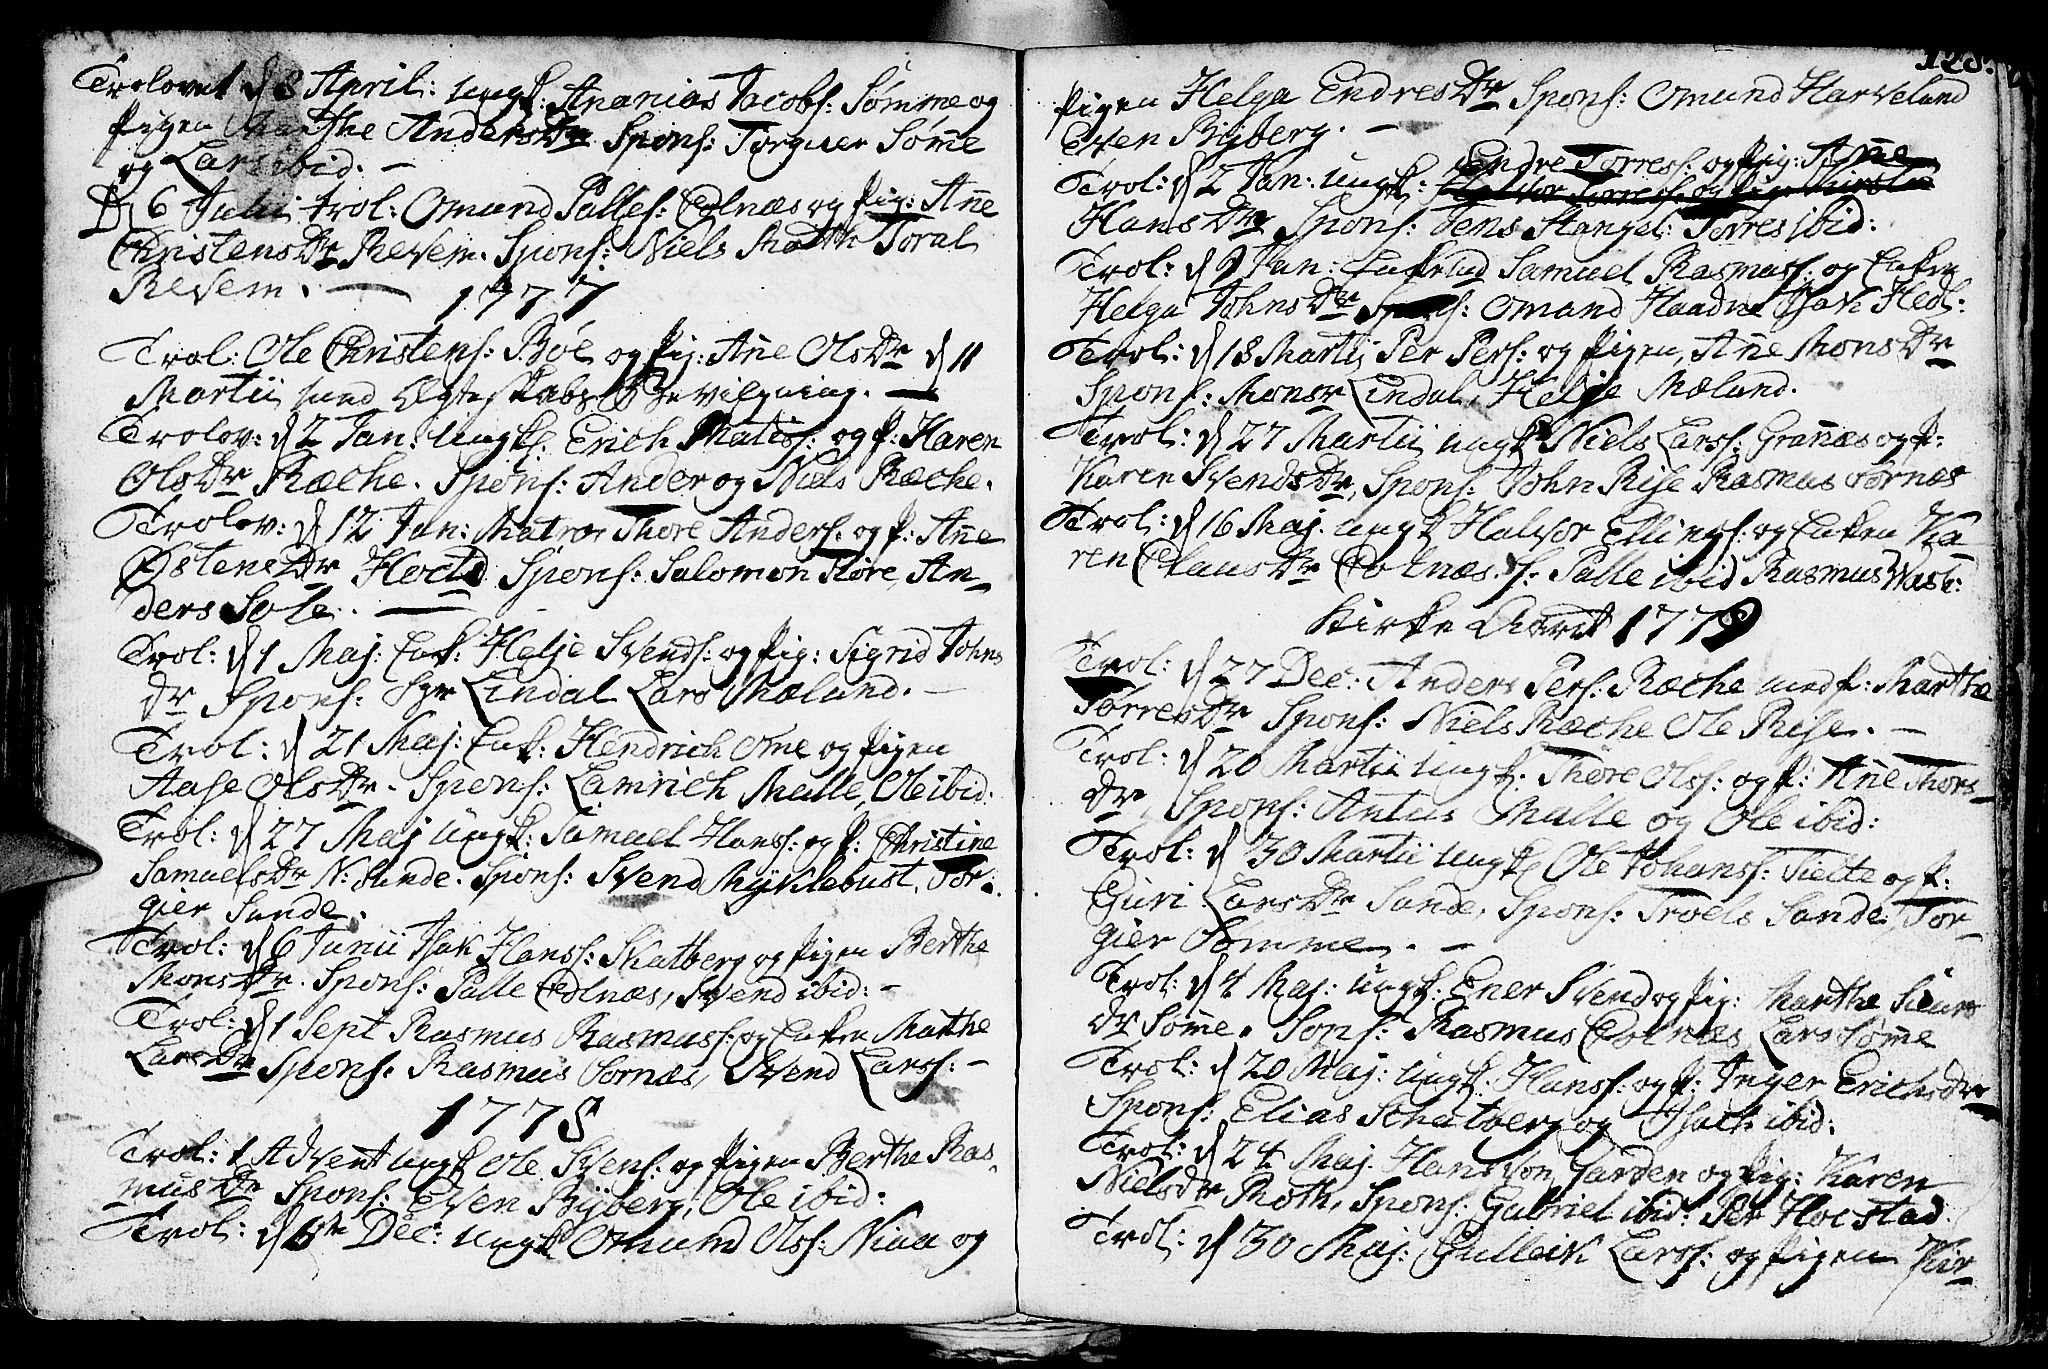 Trolovet d 8 April: ungk: Ananias Jacobs: Sømme og
Pigen Marthe AndersDr Spons: Torguer Søm̄e
og Lars ibid. —
D 6 Julii trol: Omund Palles: Edlnæs og Pig: An̄e
ChristensDr Revem. Spons: Niels Toral
Revem. —
1777
Trol: Ole Christens: Bøe og Pig: An̄e OlsDr d 11
Martii med Ægteskabs Bevilgning. —
Trolov: d 2 Jan: ungk: Erich Matiss: og P: Karen
OlsDr Ræche. Spons: Ander og Niels Ræche.
Trolov: d 12 Jan: Matros Thore Anders: og P: An̄e
ØstensDr Spons: Salomon Støre, An-
ders Sole. —
Trol: d 1 Maj: Enk: Helje Svends: og Pig: Sigrid Johns
Dr Spons: Lindal Lars Mælund. —
Trol: d 21 Maj: Enk: Hendrich Ome og Pigen
Aase OlsDr. Spons: Lamrich Malle, Ole ibid:
Trol: d 27 Maj Ungk: Samuel Hanss: og P: Christine
SamuelsDr N: Sunde. Spons: Svend Myklebust, Tor-
gier Sunde.
Trol: d 6 Junii Isak Hanss: Skatberg og Pigen Berthe
MonsDr. Spons: Palle Edlnæs, Svend ibid: —
Trol: d 1 Sept Rasmus Rasmuss: og Enken Mathe
LarsDr Spons: Rasmus Sørnæs, Svend Larss: —
1778
Trol: 1 Advent ungk Ole Svens: og Pigen Berthe Ras-
musDr Spons: Even Byberg, Ole ibid:
Trol: d Dec: ungk Omund Olss: Niaa og
128.
Pigen Helga EndresDr Spons: Omund Harveland
Even Byberg. —
Endre Torress: og Pig: An̄e
Trol: d 2 Jan: ungk: Torress: og Pige Kirstie
HansDr Spons: Jens Stangel: Torres ibid:
Trol: d 9 Jan: Samuel Rasmuss: og Enken
Helga JohnsDr Spons: Omund Haadne Isak Hedl:
Trol: d 18 Martii Per Pers: og Pigen, An̄e MonsDr
Spons: Lindal, Helje Mælund.
Trol: d 27 Martii ungk Niels Larss: Gran̄æs og P:
Karen SvendsDr, Spons: John Rise Rasmus Sørnæs
Trol: d 16 Maj. ungk Halvor Ellings: og Enken Ka-
ren ClausDr Edlnæs. S: Palle ibid Rasmus
Kirke Aaret 1779
Trol: d 27 Dec: Anders Pers: Ræche med P: Marthe
TorresDr Spons: Niels Ræche Ole Rise. —
Trol: d 20 Martii Ungk. Thore Olss: og P: An̄e Thors-
Dr, Spons: Malle og Ole ibid:
Trol: d 30 Martii Ungk Ole Johanss: Tielte og P:
Guri LarsDr Sande, Spons: Troels Sande, Tor-
gier Sømme. —
Trol: d 4 Maj: ungk: Ener Svend og Pig: Marthe Siurs
Dr Søm̄e. Sons: Rasmus Edlnæs Lars Søm̄e
Trol: d 20 Maj: ungk: Hanss: og P: Inger ErichsDr
Spons: Elias Schatberg og Isach ibid:
Trol: d 24 Maj. Hans von Garden og Pig: Karen
NielsDr Roth, Spons: Gabriel ibid: Per Hocstad.
Trol: d 30 Maj: Gulleik Larss: og Pigen Kir-